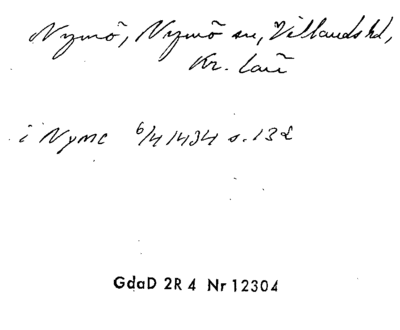 Nymö, Nymö sn, Villands hd,
Kr. län
i Nymc 6/4 1434 s. 132
GdaD 2R 4 Nr 12304